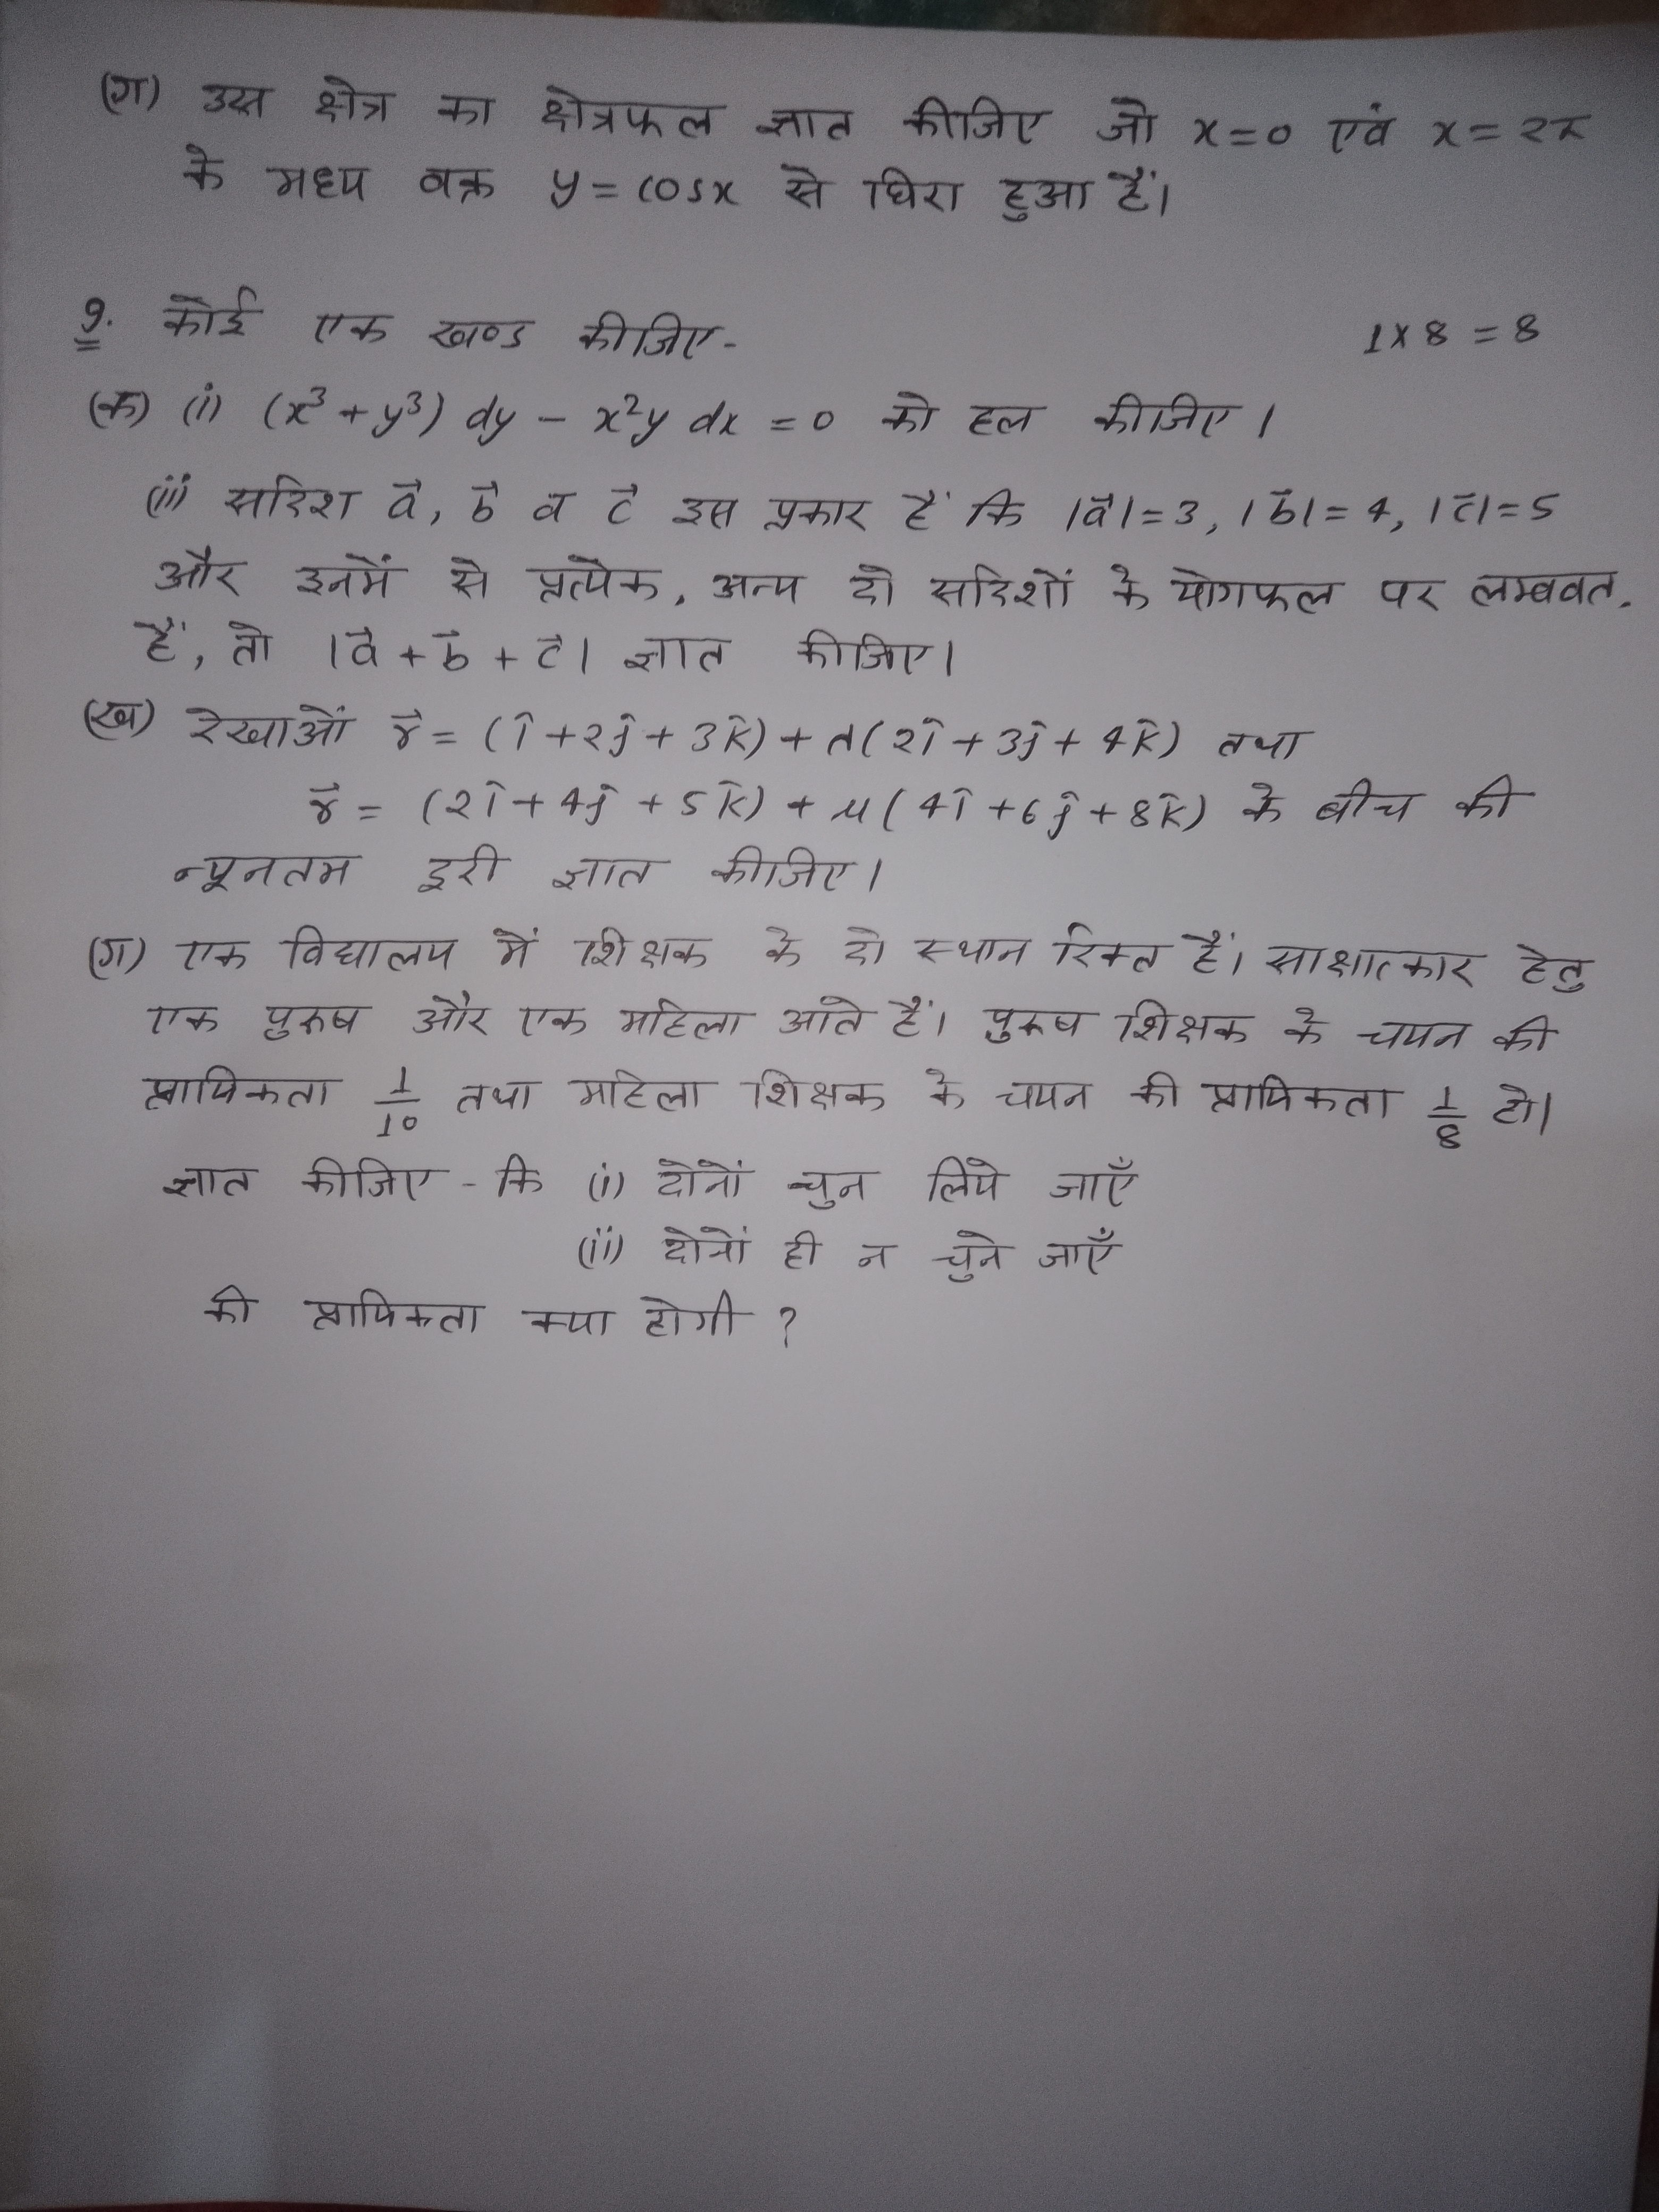 (ग) उस क्षेत्र का क्षेत्रफल ज्ञात कीजिए जो x=0 एवं x=2π
के मध्य वक्र y=cosx से घिरा हुआ है।
9. कोई एक खण्ड कीजिए- 1×8=8
(क) (i) (x³+y³) dy - x²y dx = 0 को हल कीजिए।
(ii) सदिश a⃗, b⃗ व c⃗ इस प्रकार हैं कि |a⃗|=3, |b⃗|=4, |c⃗|=5
और इनमें से प्रत्येक, अन्य दो सदिशों के योगफल पर लम्बवत्
हैं, तो |a⃗+b⃗+c⃗| ज्ञात कीजिए।
(ख) रेखाओं r⃗ = (î+2ĵ+3k̂)+λ(2î+3ĵ+4k̂) तथा
r⃗ = (2î+4ĵ+5k̂)+μ(4î+6ĵ+8k̂) के बीच की
न्यूनतम दूरी ज्ञात कीजिए।
(ग) एक विद्यालय में शिक्षक के दो स्थान रिक्त हैं। साक्षात्कार हेतु
एक पुरूष और एक महिला आते हैं। पुरूष शिक्षक के चयन की
प्रायिकता 1/10 तथा महिला शिक्षक के चयन की प्रायिकता 1/8 हो।
ज्ञात कीजिए - कि (i) दोनों चुन लिये जाएँ
(ii) दोनों ही न चुने जाएँ
की प्रायिकता क्या होगी ?